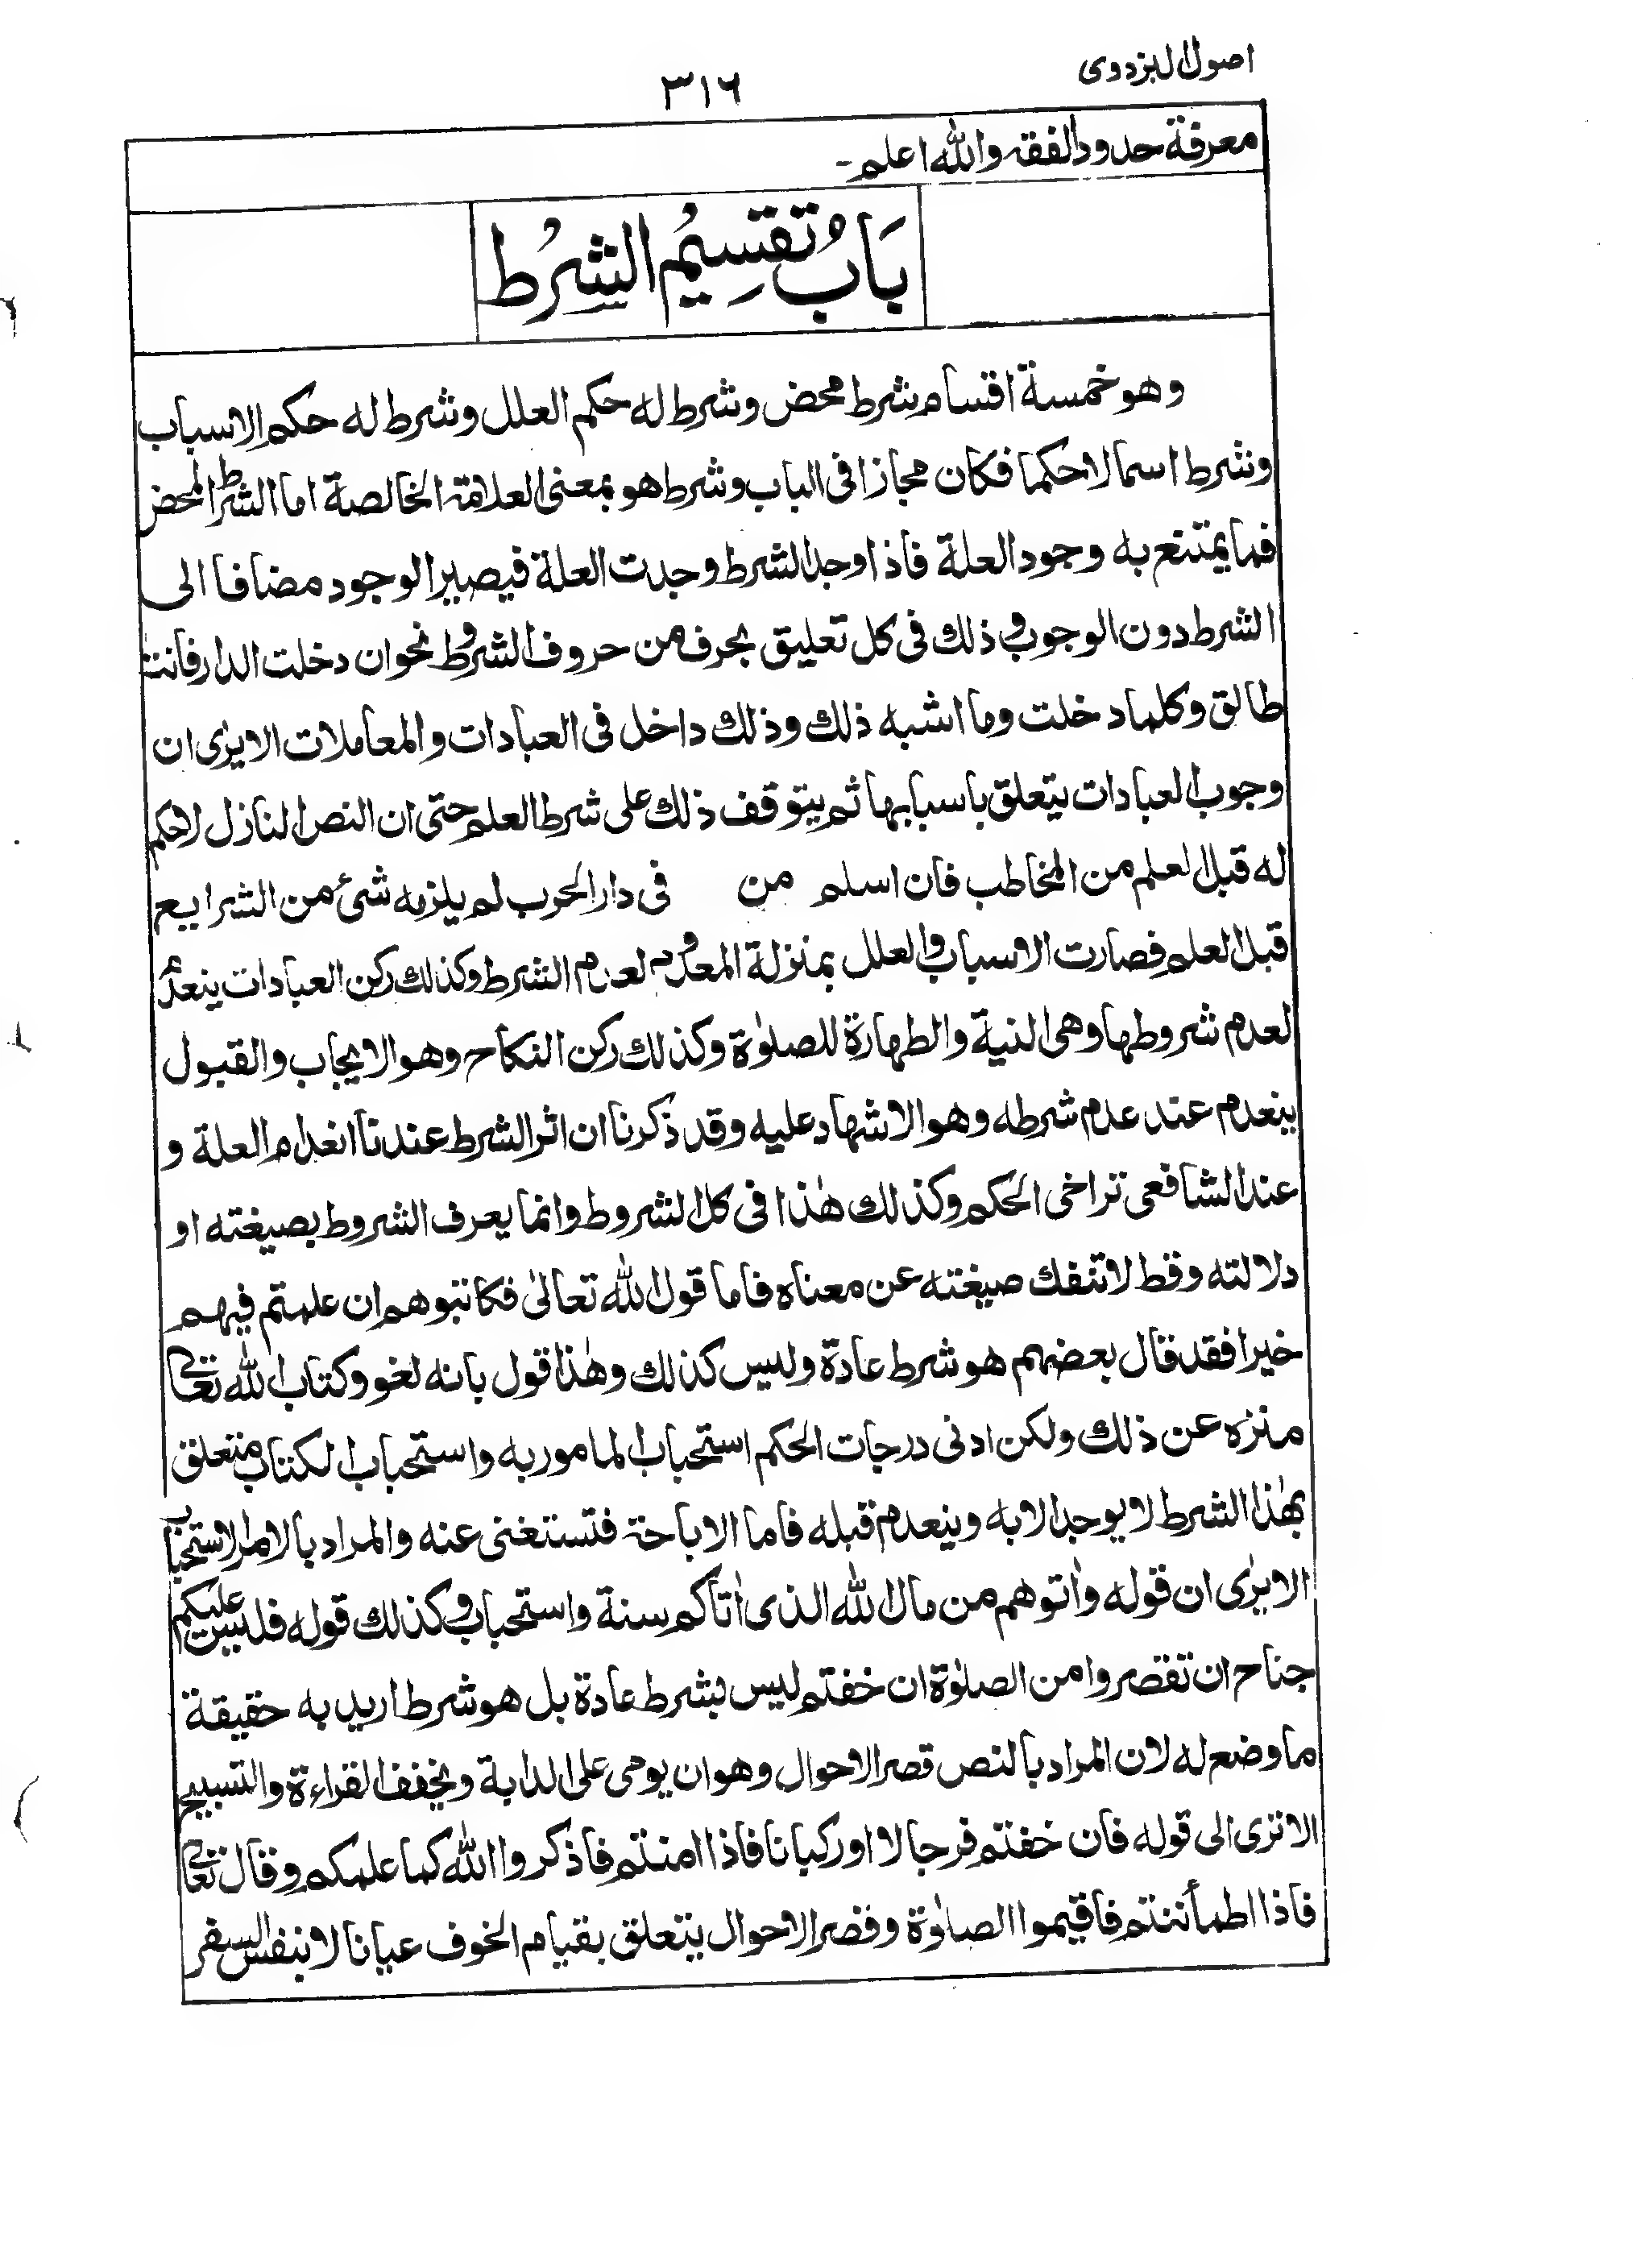 اصول البزدوی
٣١٦
معرفة حدود الفقه والله اعلم-
بَابُ تقسِيُم الشرُط
وهو خمسة اقسام شرط محض وشرط له حكم العلل وشرط له حكم الاسباب
وشرط اسما لا حكما فكان مجازا فى الباب وشرط هو بمعنى العلامة الخالصة اما الشرط المحض
فما يمتنع به وجود العلة فاذا وجد الشرط وجدت العلة فيصير الوجود مضافا الى
الشرط دون الوجوب وذلك فى كل تعليق بحرف من حروف الشروط نحو ان دخلت الدار فانت
طالق وكلما دخلت وما اشبه ذلك وذلك داخل فى العبادات والمعاملات الا يرى ان
وجوب العبادات يتعلق باسبابها ثم يتوقف ذلك على شرط العلم حتى ان النص النازل لا حكم
له قبل العلم من المخاطب فان اسلم من فى دار الحرب لم يلزمه شئ من الشرايع
قبل العلم فصارت الاسباب والعلل بمنزلة المعدوم لعدم الشرط وكذلك ركن العبادات ينعدم
لعدم شروطها وهى النية والطهارة للصلوٰة وكذلك ركن النكاح وهو الايجاب والقبول
ينعدم عند عدم شرطه وهو الاشهاد عليه وقد ذكرنا ان اثر الشرط عندنا انعدام العلة و
عند الشافعى تراخى الحكم وكذلك هٰذا فى كل الشروط وانما يعرف الشروط بصيغته او
دلالته وقط لا تنفك صيغته عن معناه فاما قول الله تعالىٰ فكاتبوهم ان علمتم فيهم
خيرا فقد قال بعضهم هو شرط عادة وليس كذلك وهٰذا قول بانه لغو وكتاب الله تعالٰى
منزه عن ذلك ولكن ادنى درجات الحكم استحباب المامور به واستحباب الكتاب متعلق
بهٰذا الشرط لا يوجد الا به وينعدم قبله فاما الاباحة فتستغنى عنه والمراد بالامر الاستحباب
الا يرٰى ان قوله واٰتوهم من مال الله الذى اٰتاكم سنة واستحباب وكذلك قوله فليس عليكم
جناح ان تقصروا من الصلوٰة ان خفتم ليس بشرط عادة بل هو شرط اريد به حقيقة
ما وضع له لان المراد بالنص قصر الاحوال وهو ان يومى على الدابة ويخفف القراءة والتسبيح
الا ترى الى قوله فان خفتم فرجالا او ركبانا فاذا امنتم فاذكروا الله كما علمكم وقال تعالٰى
فاذا اطمأننتم فاقيموا الصلوٰة وقصر الاحوال يتعلق بقيام الخوف عيانا لا بنفس السفر